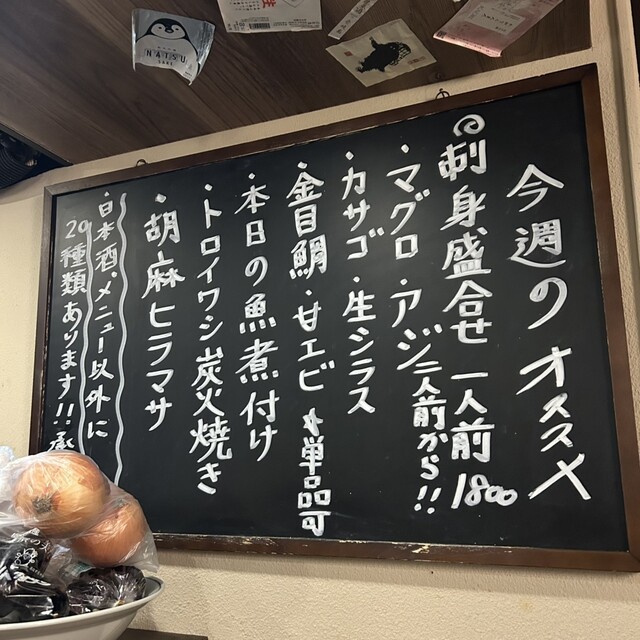 今週のオススメ
◎刺身盛合せ 一人前 1800
・マグロ・アジ 二人前から!!
・カサゴ・生シラス
・金目鯛・甘エビ ☆単品可
・本日の魚煮付け
・トロイワシ炭火焼き
・胡麻ヒラマサ
・日本酒、メニュー以外に
20種類あります!!
NATSU
SAKE